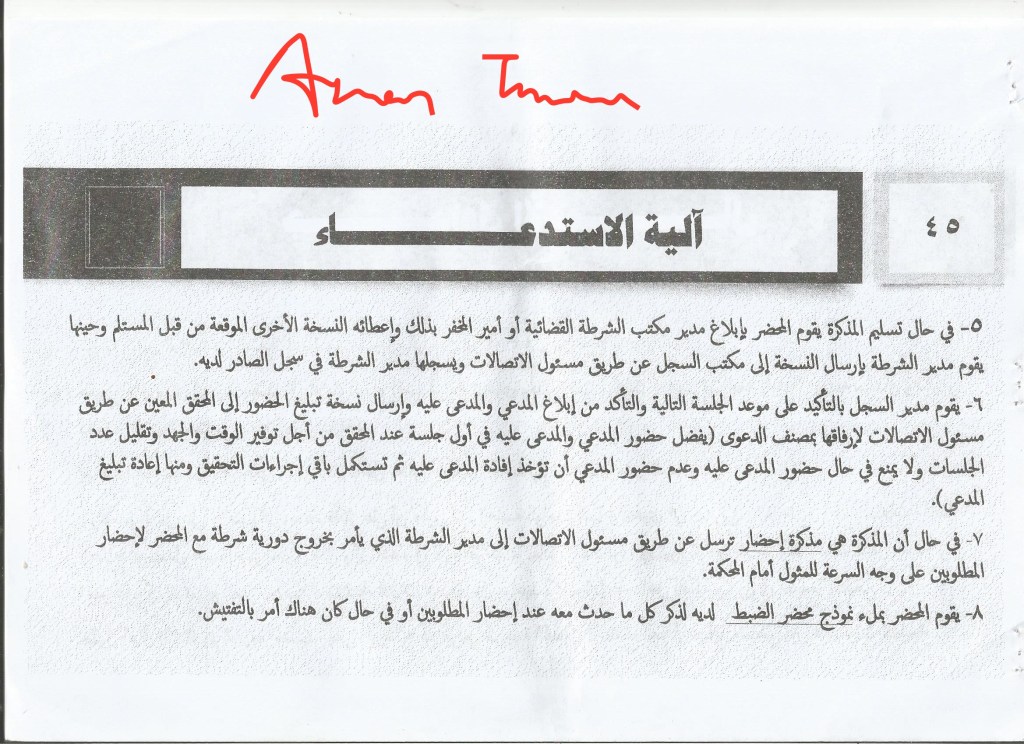 آلية الاستدعاء
٤٥
٥- في حال تسليم المذكرة يقوم المحضر بإبلاغ مدير مكتب الشرطة القضائية أو أمير المخفر بذلك وإعطائه النسخة الأخرى الموقعة من قبل المستلم وحينها
يقوم مدير الشرطة بإرسال النسخة إلى مكتب السجل عن طريق مسئول الاتصالات ويسجلها مدير الشرطة في سجل الصادر لديه.
٦- يقوم مدير السجل بالتأكيد على موعد الجلسة التالية والتأكد من إبلاغ المدعي والمدعى عليه وإرسال نسخة تبليغ الحضور إلى المحقق المعين عن طريق
مسئول الاتصالات لإرفاقها بمصنف الدعوى (يفضل حضور المدعي والمدعى عليه في أول جلسة عند المحقق من أجل توفير الوقت والجهد وتقليل عدد
الجلسات ولا يمنع في حال حضور المدعى عليه وعدم حضور المدعي أن تؤخذ إفادة المدعى عليه ثم تستكمل باقي إجراءات التحقيق ومنها إعادة تبليغ
المدعي).
٧- في حال أن المذكرة هي مذكرة إحضار ترسل عن طريق مسئول الاتصالات إلى مدير الشرطة الذي يأمر بخروج دورية شرطة مع المحضر لإحضار
المطلوبين على وجه السرعة للمثول أمام المحكمة.
٨- يقوم المحضر بملء نموذج محضر الضبط لديه لذكر كل ما حدث معه عند إحضار المطلوبين أو في حال كان هناك أمر بالتفتيش.